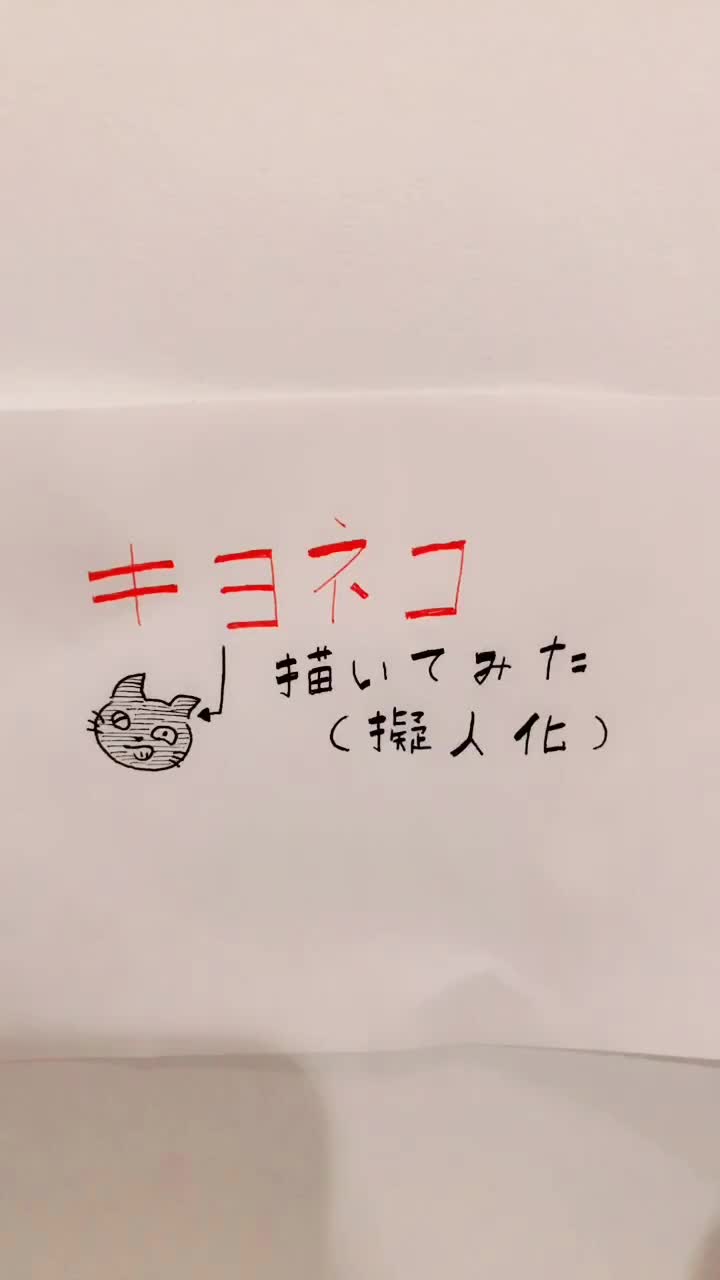 キヨネコ
描いてみた
（擬人化）